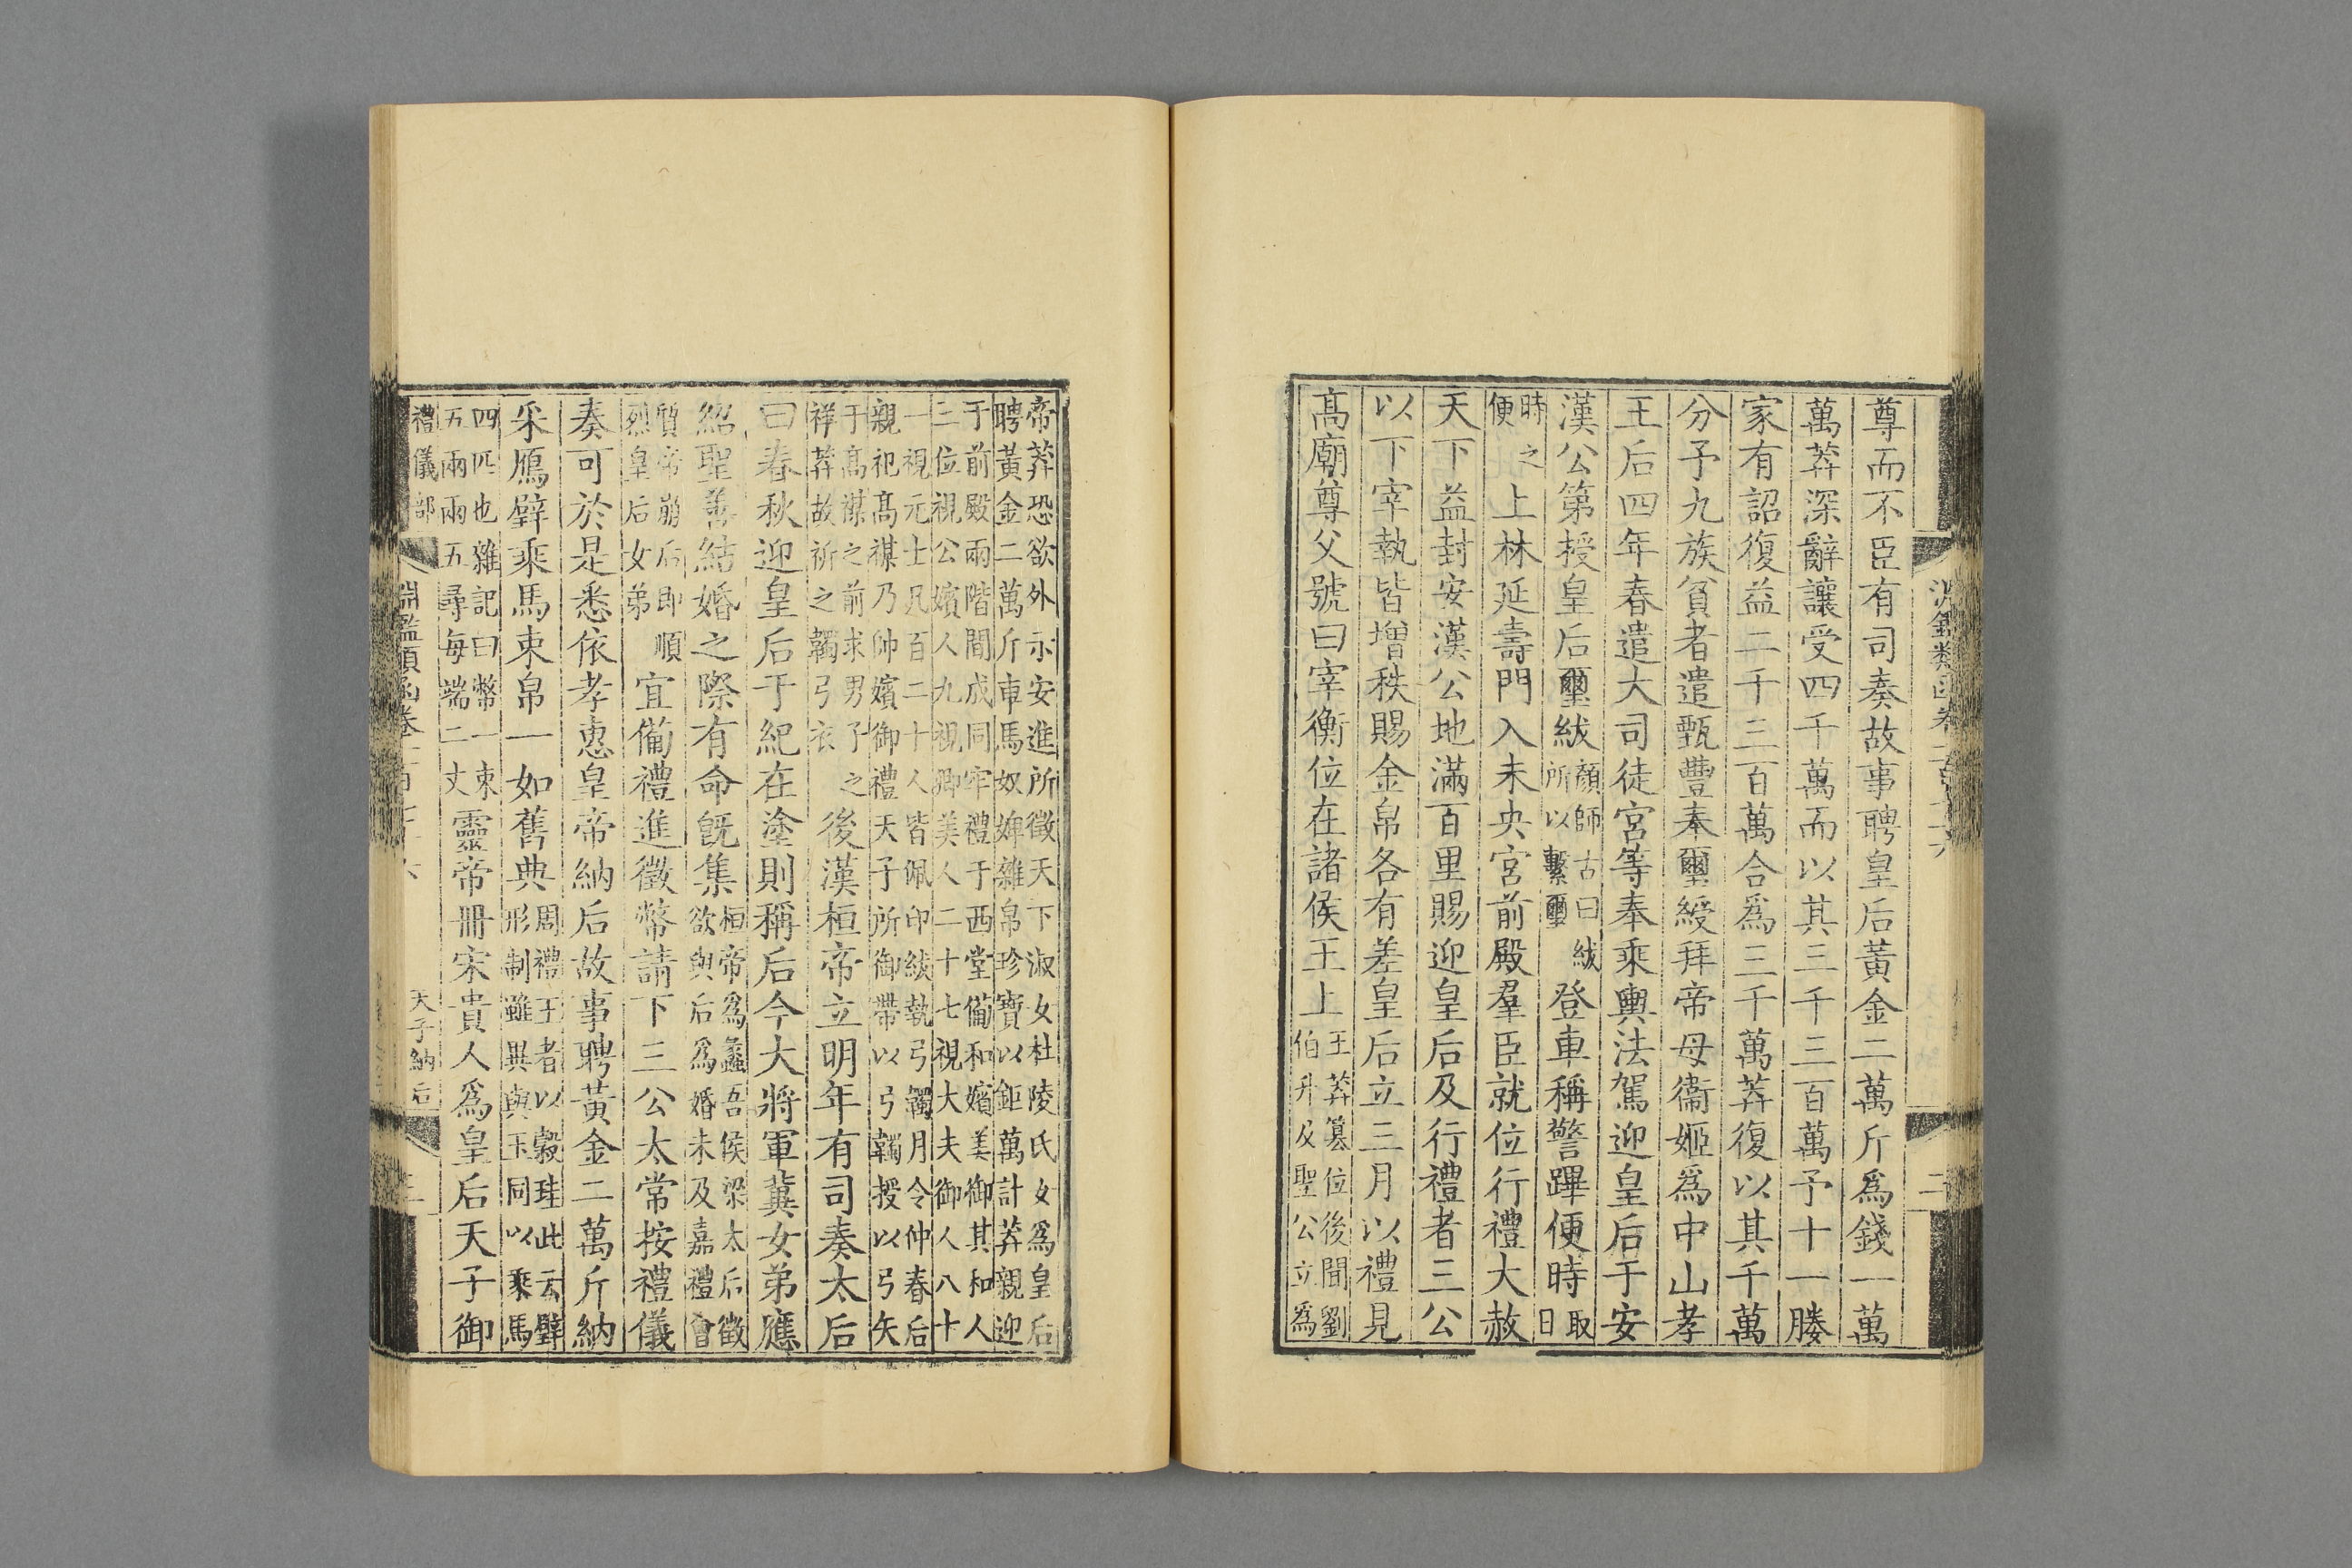 尊而不臣有司奏故事聘皇后黃金二萬斤爲錢一萬
萬莽深辭讓受四千萬而以其三千三百萬予十一媵
家有詔復益二千三百萬合爲三千萬莽復以其千萬
分予九族貧者遣甄豐奉璽綬拜帝母衞姬爲中山孝
王后四年春遣大司徒宮等奉乘輿法駕迎皇后于安
漢公第授皇后璽紱
顏師古曰紱
所以繫璽
登車稱警蹕便時
取
日
時之
便
上林延壽門入未央宮前殿羣臣就位行禮大赦
天下益封安漢公地滿百里賜迎皇后及行禮者三公
以下宰執皆增秩賜金帛各有差皇后立三月以禮見
高廟尊父號曰宰衡位在諸侯王上
王莽篡位後聞劉
伯升及聖公立爲
帝莽恐欲外示安進所徵天下淑女杜陵氏女爲皇后
聘黃金二萬斤車馬奴婢雜帛珍寶以鉅萬計莽親迎
于前殿兩階間成同牢禮于西堂備和嬪美御其和人
三位視公嬪人九視卿美人二十七視大夫御人八十
一視元士凡百二十人皆佩印紱執弓韣月令仲春后
親祀高禖乃帥嬪御禮天子所御帶以弓韣授以弓矢
于高禖之前求男子之
祥莽故祈之韣弓衣
後漢桓帝立明年有司奏太后
曰春秋迎皇后于紀在塗則稱后今大將軍冀女弟應
紹聖善結婚之際有命旣集
桓帝爲蠡吾侯梁太后徵
欲與后爲婚未及嘉禮會
質帝崩后卽順
烈皇后女弟
宜備禮進徵幣請下三公太常按禮儀
奏可於是悉依孝惠皇帝納后故事聘黃金二萬斤納
采鴈璧乘馬束帛一如舊典
周禮王者以穀珪此云璧
形制雖異與玉同以乘馬
四匹也雜記曰幣一束
五兩兩五尋每端二丈
靈帝冊宋貴人爲皇后天子御
禮儀部
淵鑑類函卷
天子納后